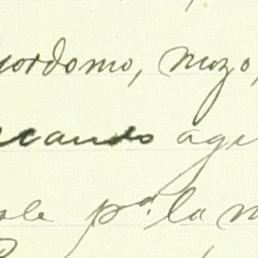 yordomo, mozo,
cando agu
ole pª. la m